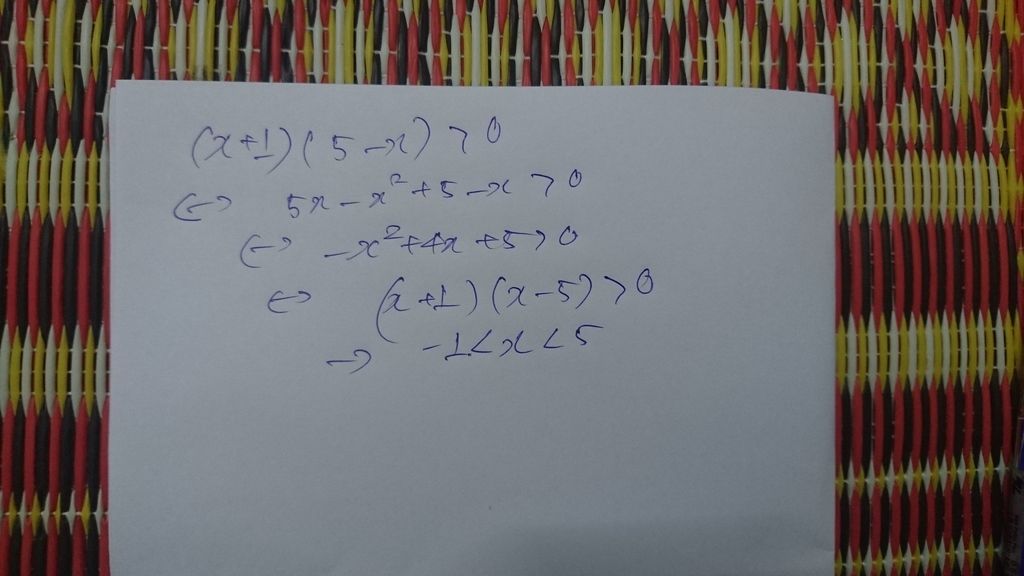 (x+1)(5-x)>0
↔ 5x-x²+5-x>0
↔ -x²+4x+5>0
↔ (x+1)(x-5)>0
→ -1<x<5